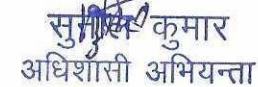 कुमार
अधिशासी अभियन्ता